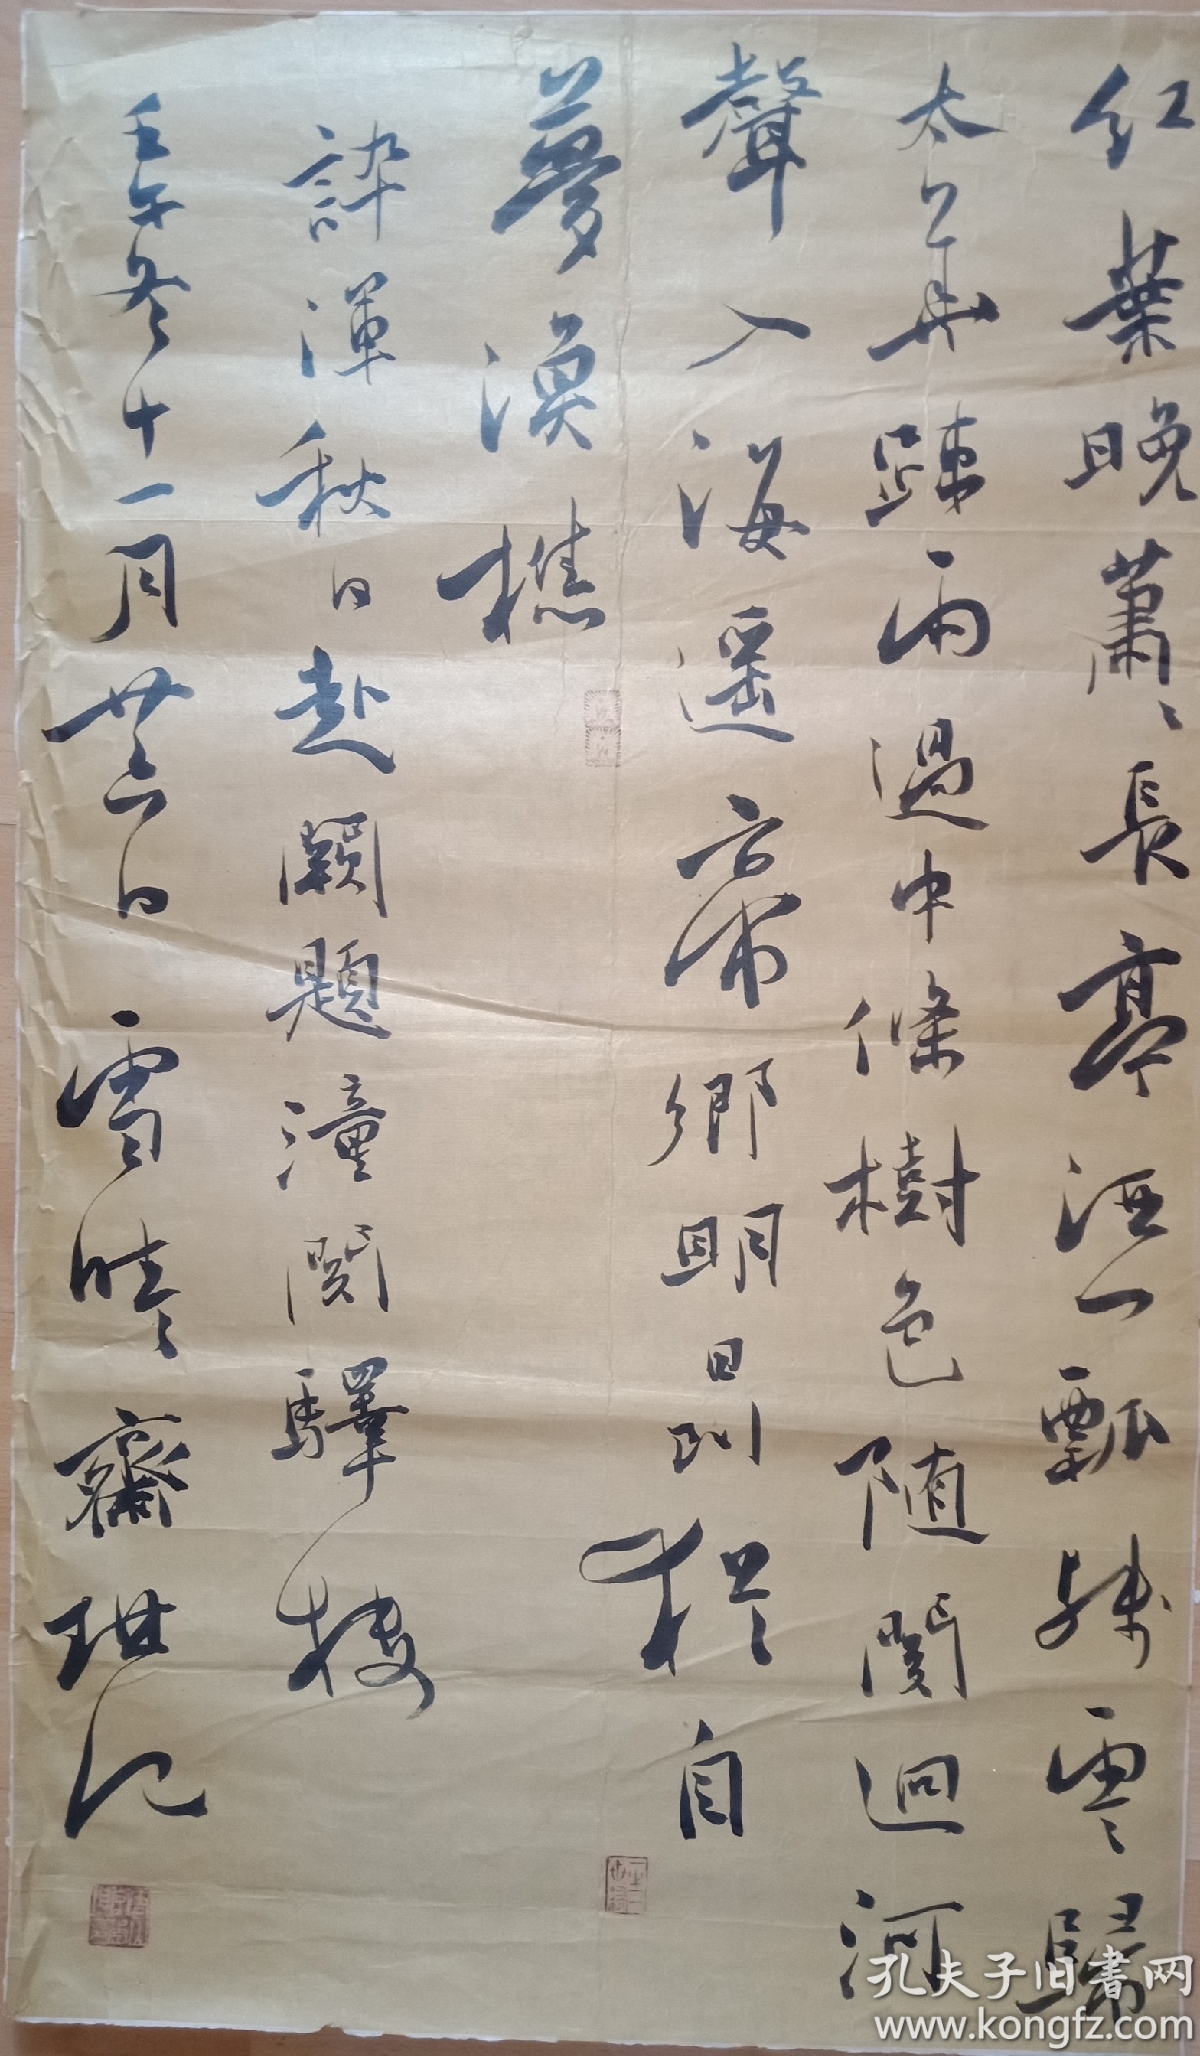 红葉晚蕭蕭長亭酒一瓢殘雲歸
太華踈雨過中條樹色随関迥河
聲入海遥帝鄉明日到猶自
夢漁樵
許渾秋日赴闕題潼関驛楼
壬午冬十一月廿六日雪晴齋琪记
孔夫子旧書网
www.kongfz.com